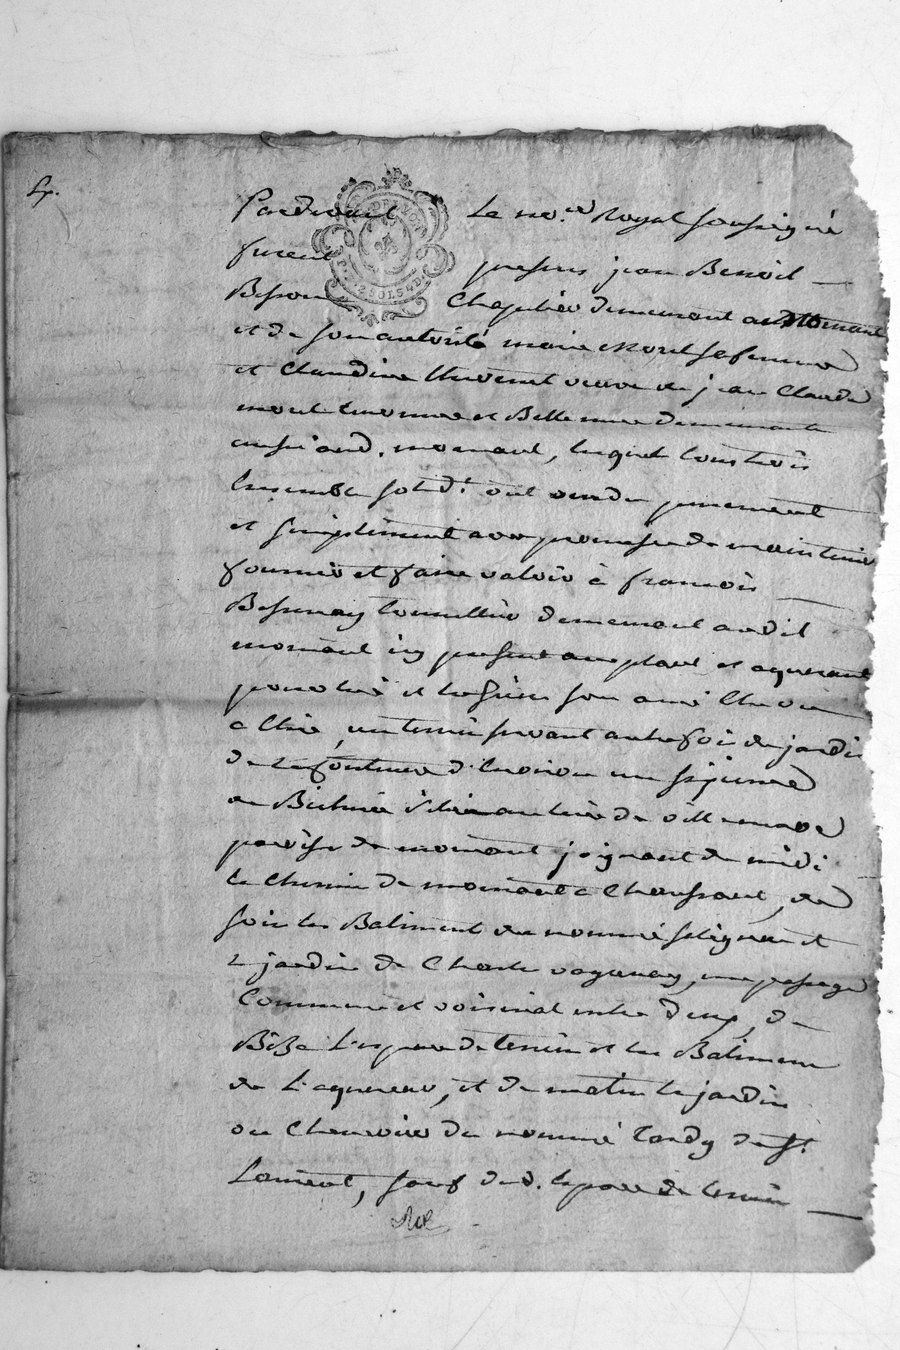 Lx.
Pardevant Le no.re Royal soussigné
furent presens jean Benoit
Besson Chapelier demeurant a Mornant
et de son autorité marie sa femme
et Claudine Thevenet veuve de jean Claude
mere demeurante
aud. mornant, lesquels tous trois
Ensemble solid.t ont vendu purement
et simplement avec promesse de maintenir
fournir et faire valoir à françois
Bessenay tonnellier demeurant audit
mornant icy present acceptant et aquereant
pour lui et les siens son ami Elu ou
a Elire, un tenin servant autrefois de jardin
de la Contenue d'Environ un
parroisse de mornant joignant de midi
le chemin de mornant a Chaussant, de
soir les Batiment du nommé et
le jardin de Charle vaganay, un passage
Commun et voisinal entre deux, de
Bize L'espace de terrin et les Batimens
de L'aquereur, et de matin le jardin
ou Cheneviere du nommé Tardy de St
Laurent, sauf dud. Espace de terrin